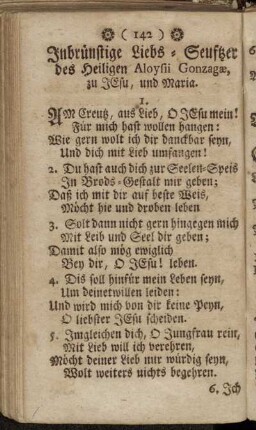 ( 142 )
Inbrünstige Liebs-Seufftzer
des Heiligen Aloysii Gonzagæ,
zu JEsu, und Maria.
1.
AM Creutz, aus Lieb, O JEsu mein!
Für mich hast wollen hangen:
Wie gern wolt ich dir danckbar seyn,
Und dich mit Lieb umfangen!
2. Du hast auch dich zur Seelen-Speis
In Brods-Gestalt mir geben;
Daß ich mit dir auf beste Weis,
Möcht hie und droben leben
3. Solt dann nicht gern hingegen mich
Mit Leib und Seel dir geben;
Damit also mög ewiglich
Bey dir, O JEsu! leben.
4. Dis soll hinfür mein Leben seyn,
Um deinetwillen leiden:
Und wird mich von dir keine Peyn,
O liebster JEsu scheiden.
5. Imgleichen dich, O Jungfrau rein,
Mit Lieb will ich verehren,
Möcht deiner Lieb mir würdig seyn,
Wolt weiters nichts begehren.
6. Ich